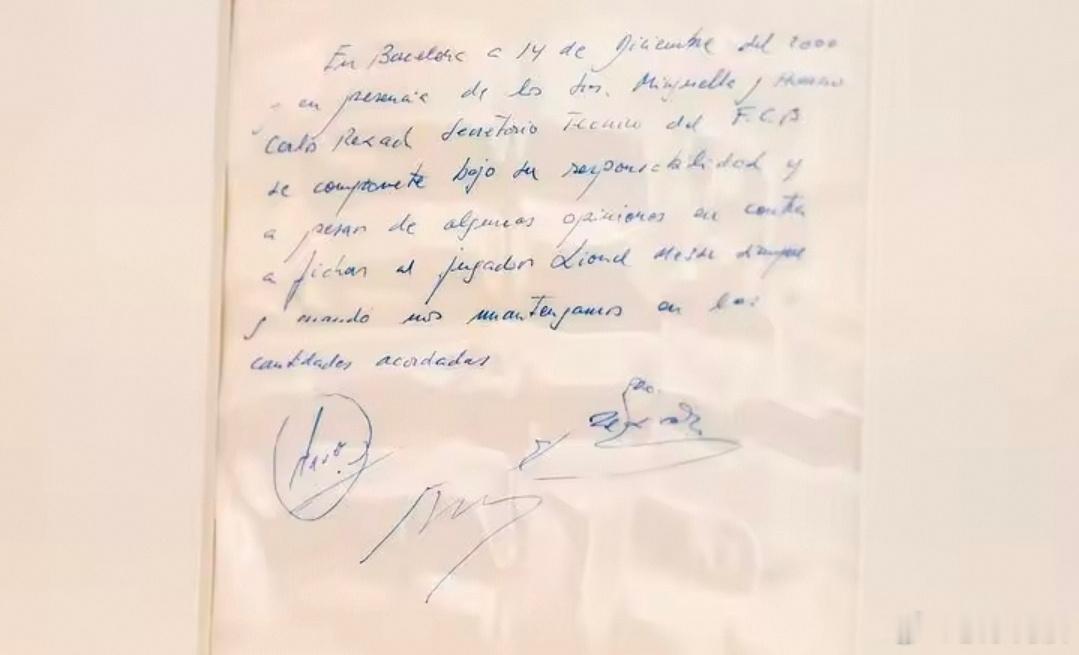 En Barcelona a 14 de Diciembre del 2000
y en presencia de los Sres. Minguella y Horacio
Carlos Rexach Secretario Técnico del F.C.B.
se compromete bajo su responsabilidad y
a pesar de algunas opiniones en contra
a fichar al jugador Lionel Messi siempre
y cuando nos mantengamos en las
cantidades acordadas